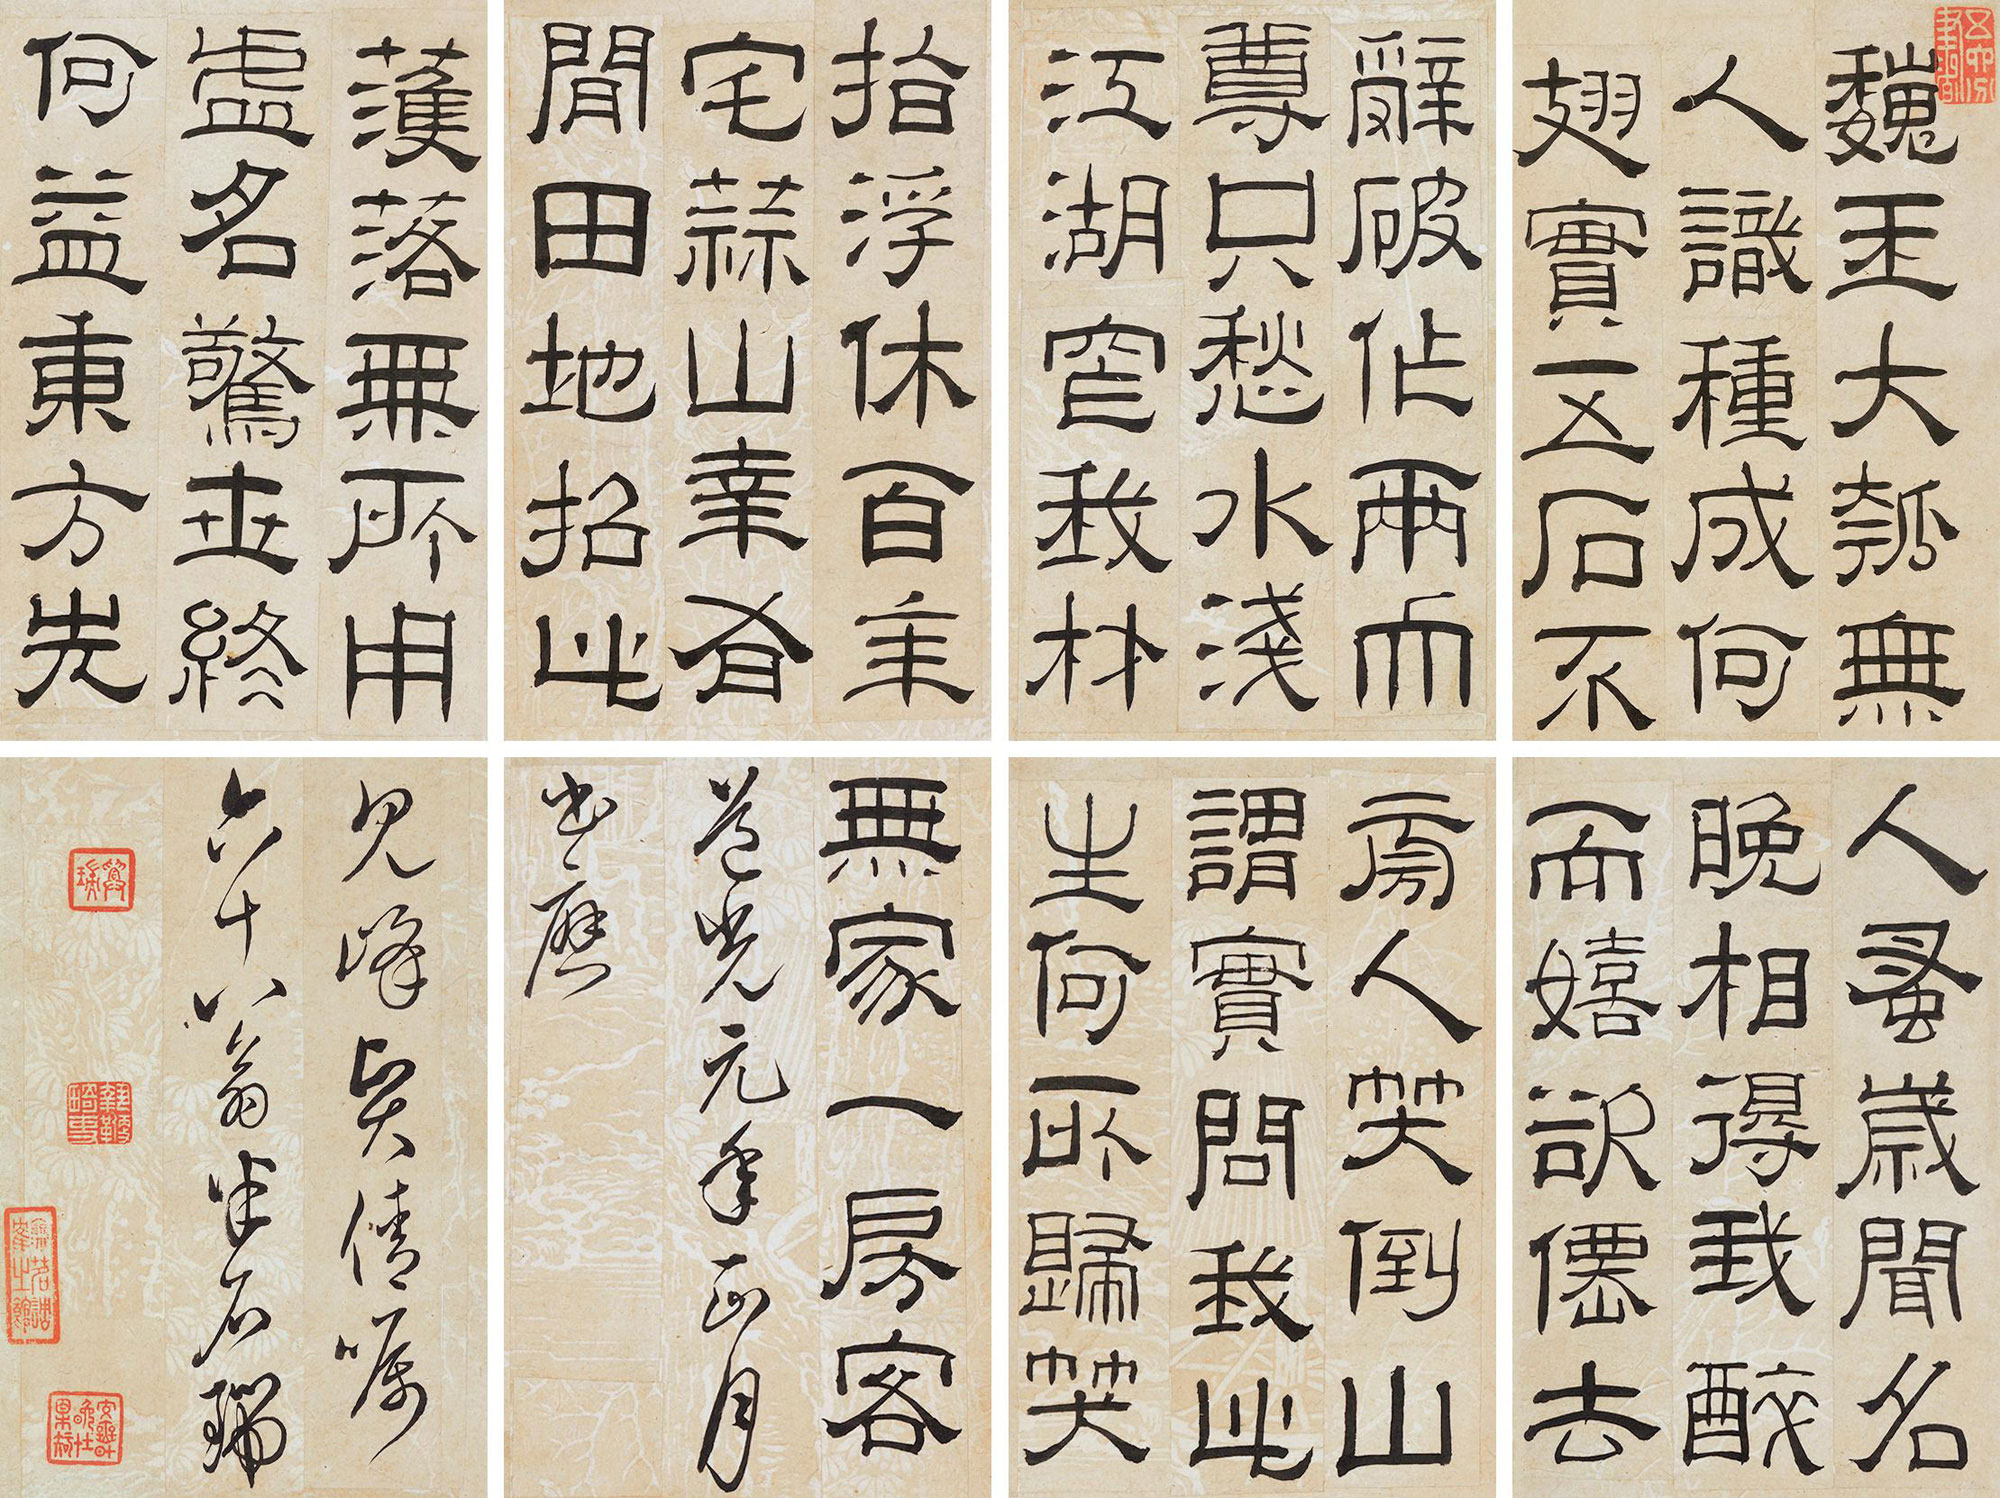 魏王大瓠無
人識種成何
翅實五石不
辭破作兩而
尊只愁水淺
江湖窄我材
濩落無所用
虛名驚世終
何益東方先
生
指浮休百年
宅蒜山幸有
閒田地招此
無家一房客
人蚤歲聞名
晚相得我醉
而嬉欲僊去
旁人笑倒山
謂實問我此
生何所歸笑
道光元年正月
書應
見峰賢倩囑
六十八翁伴石瑞